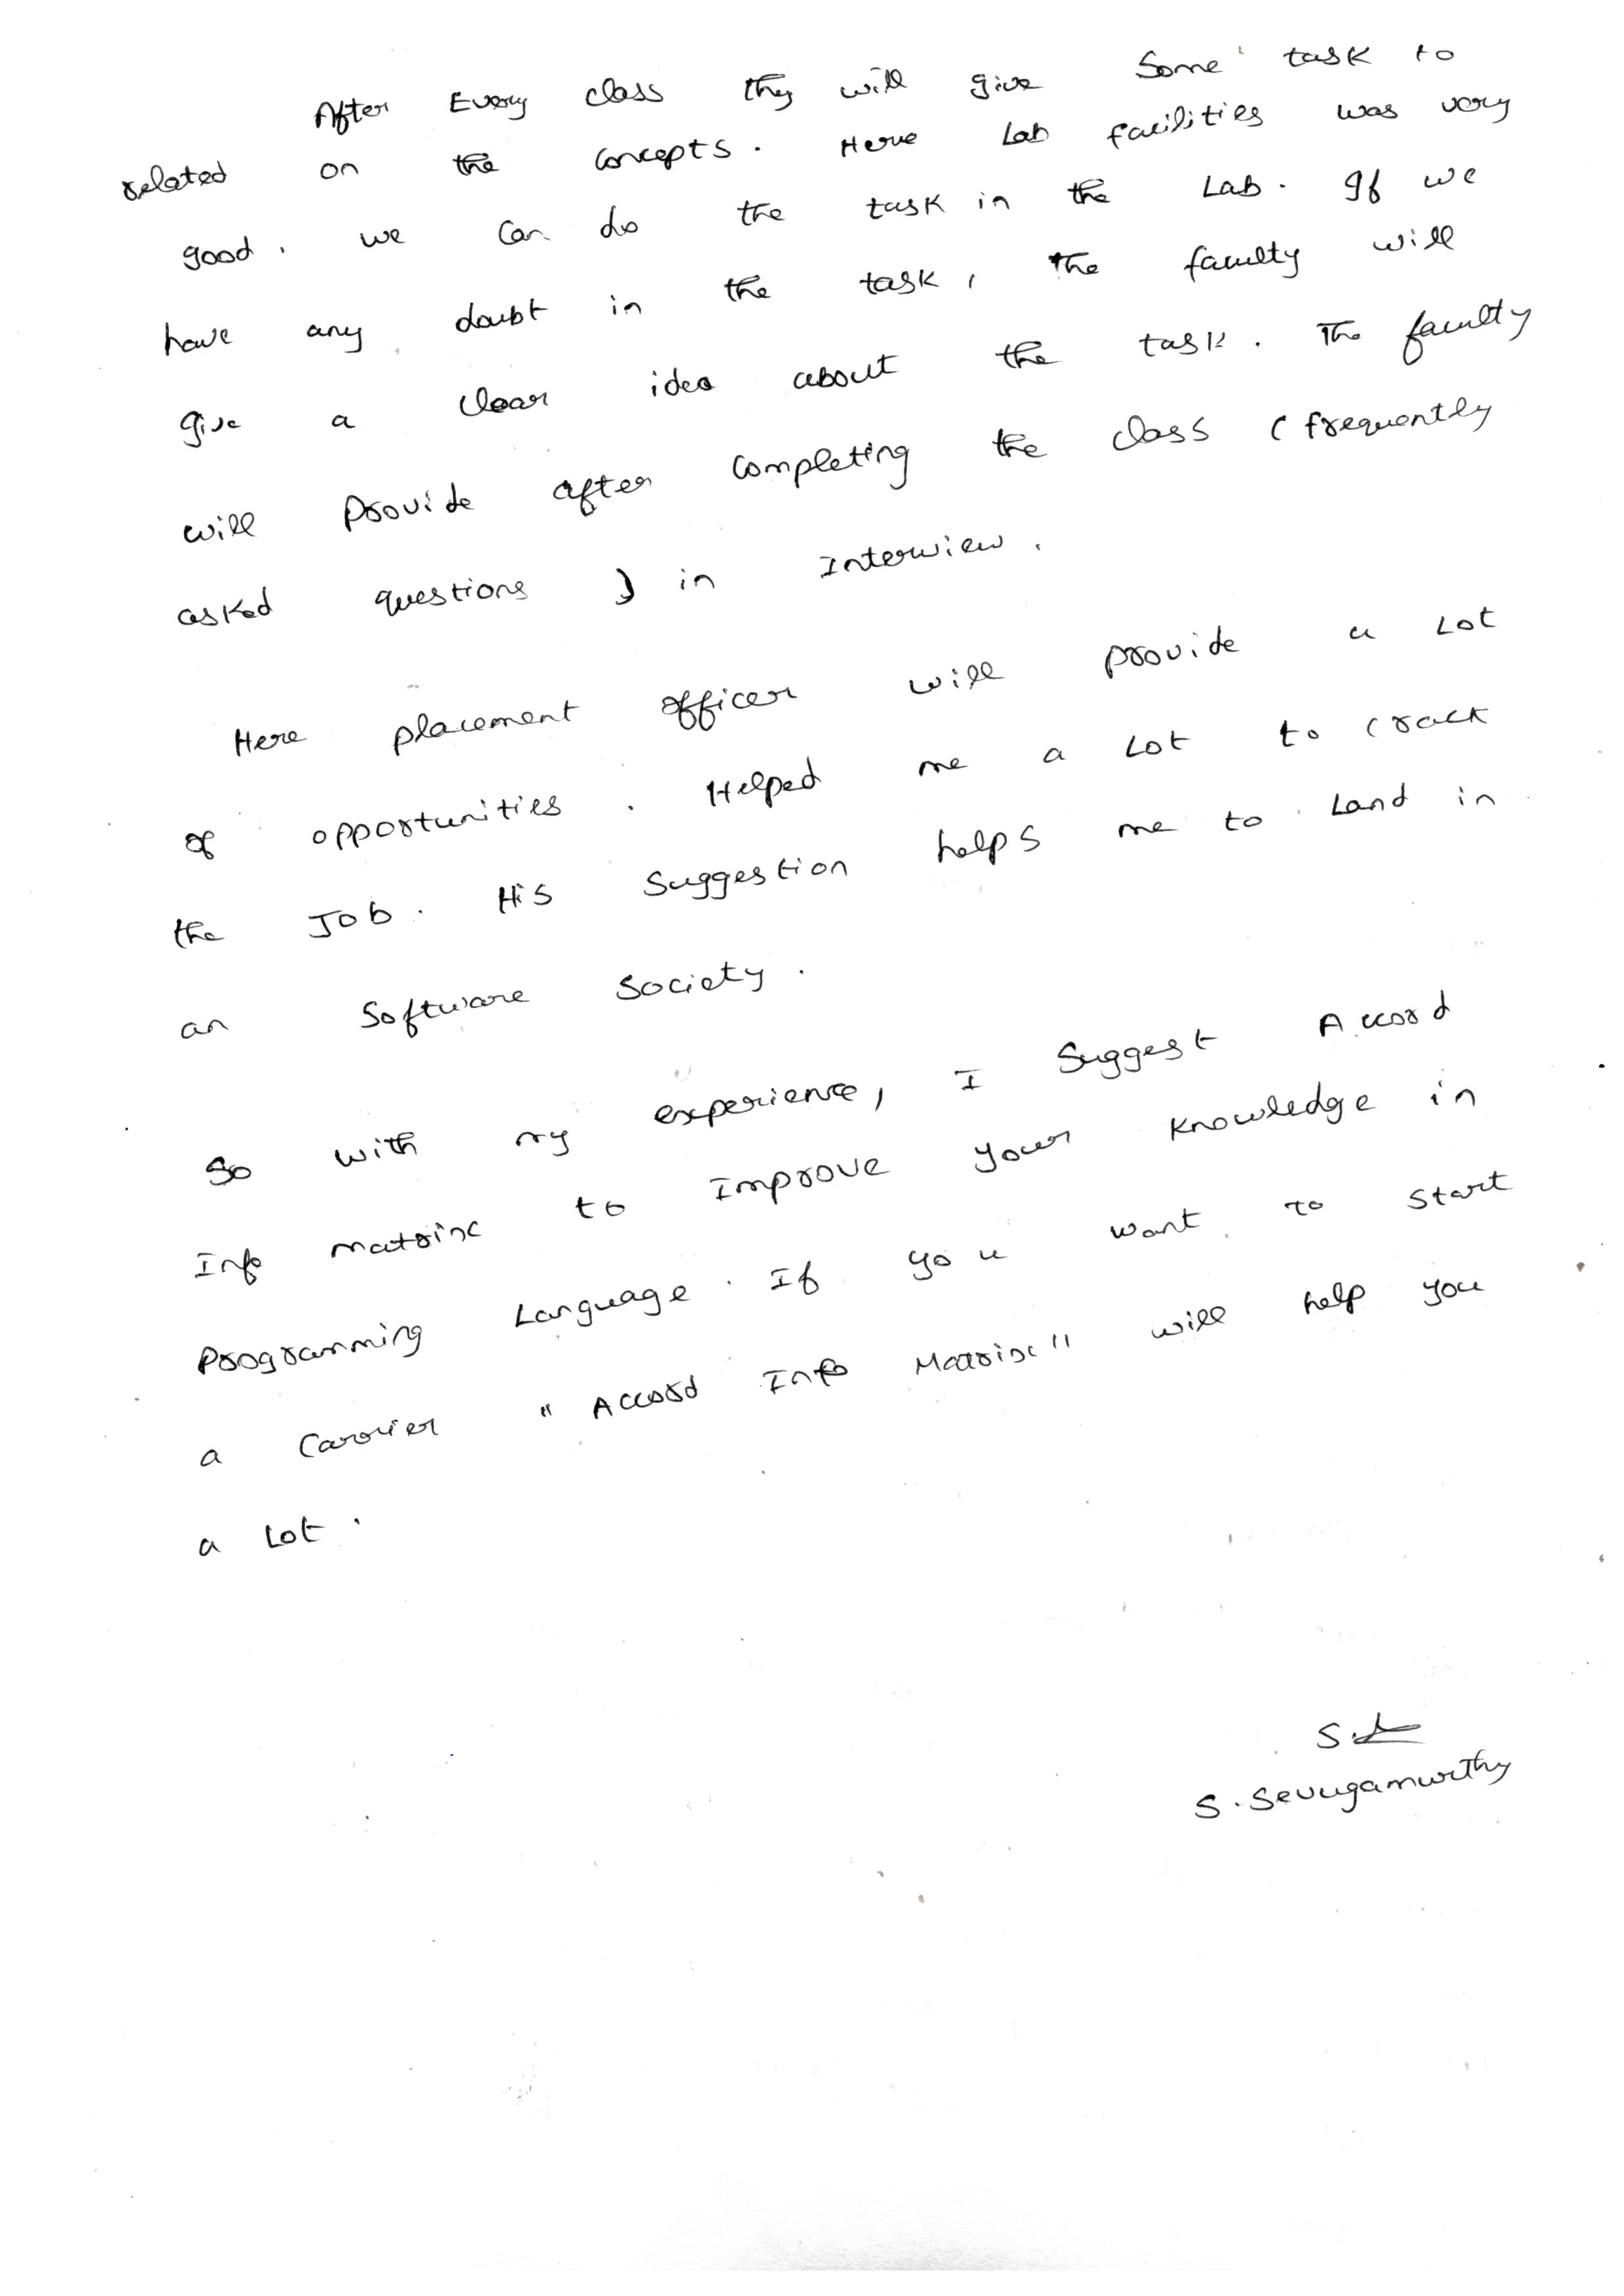 After Every class they will give Some task to
related on the concepts. Here Lab facilities was very
good. we can do the task in the Lab. If we
have any doubt in the task, the faculty will
give a clear idea about the task. The faculty
will provide after completing the class (frequently
asked questions) in Interview.
Here placement officer will provide a Lot
of opportunities. Helped me a Lot to crack
the Job. His Suggestion helps me to Land in
an Software Society.
So with my experience, I Suggest Accord
Info matrix to Improve your Knowledge in
Programming Language. If you want to Start
a Carrier "Accord Info Matrix" will help you
a Lot.
S. Sevugamurthy